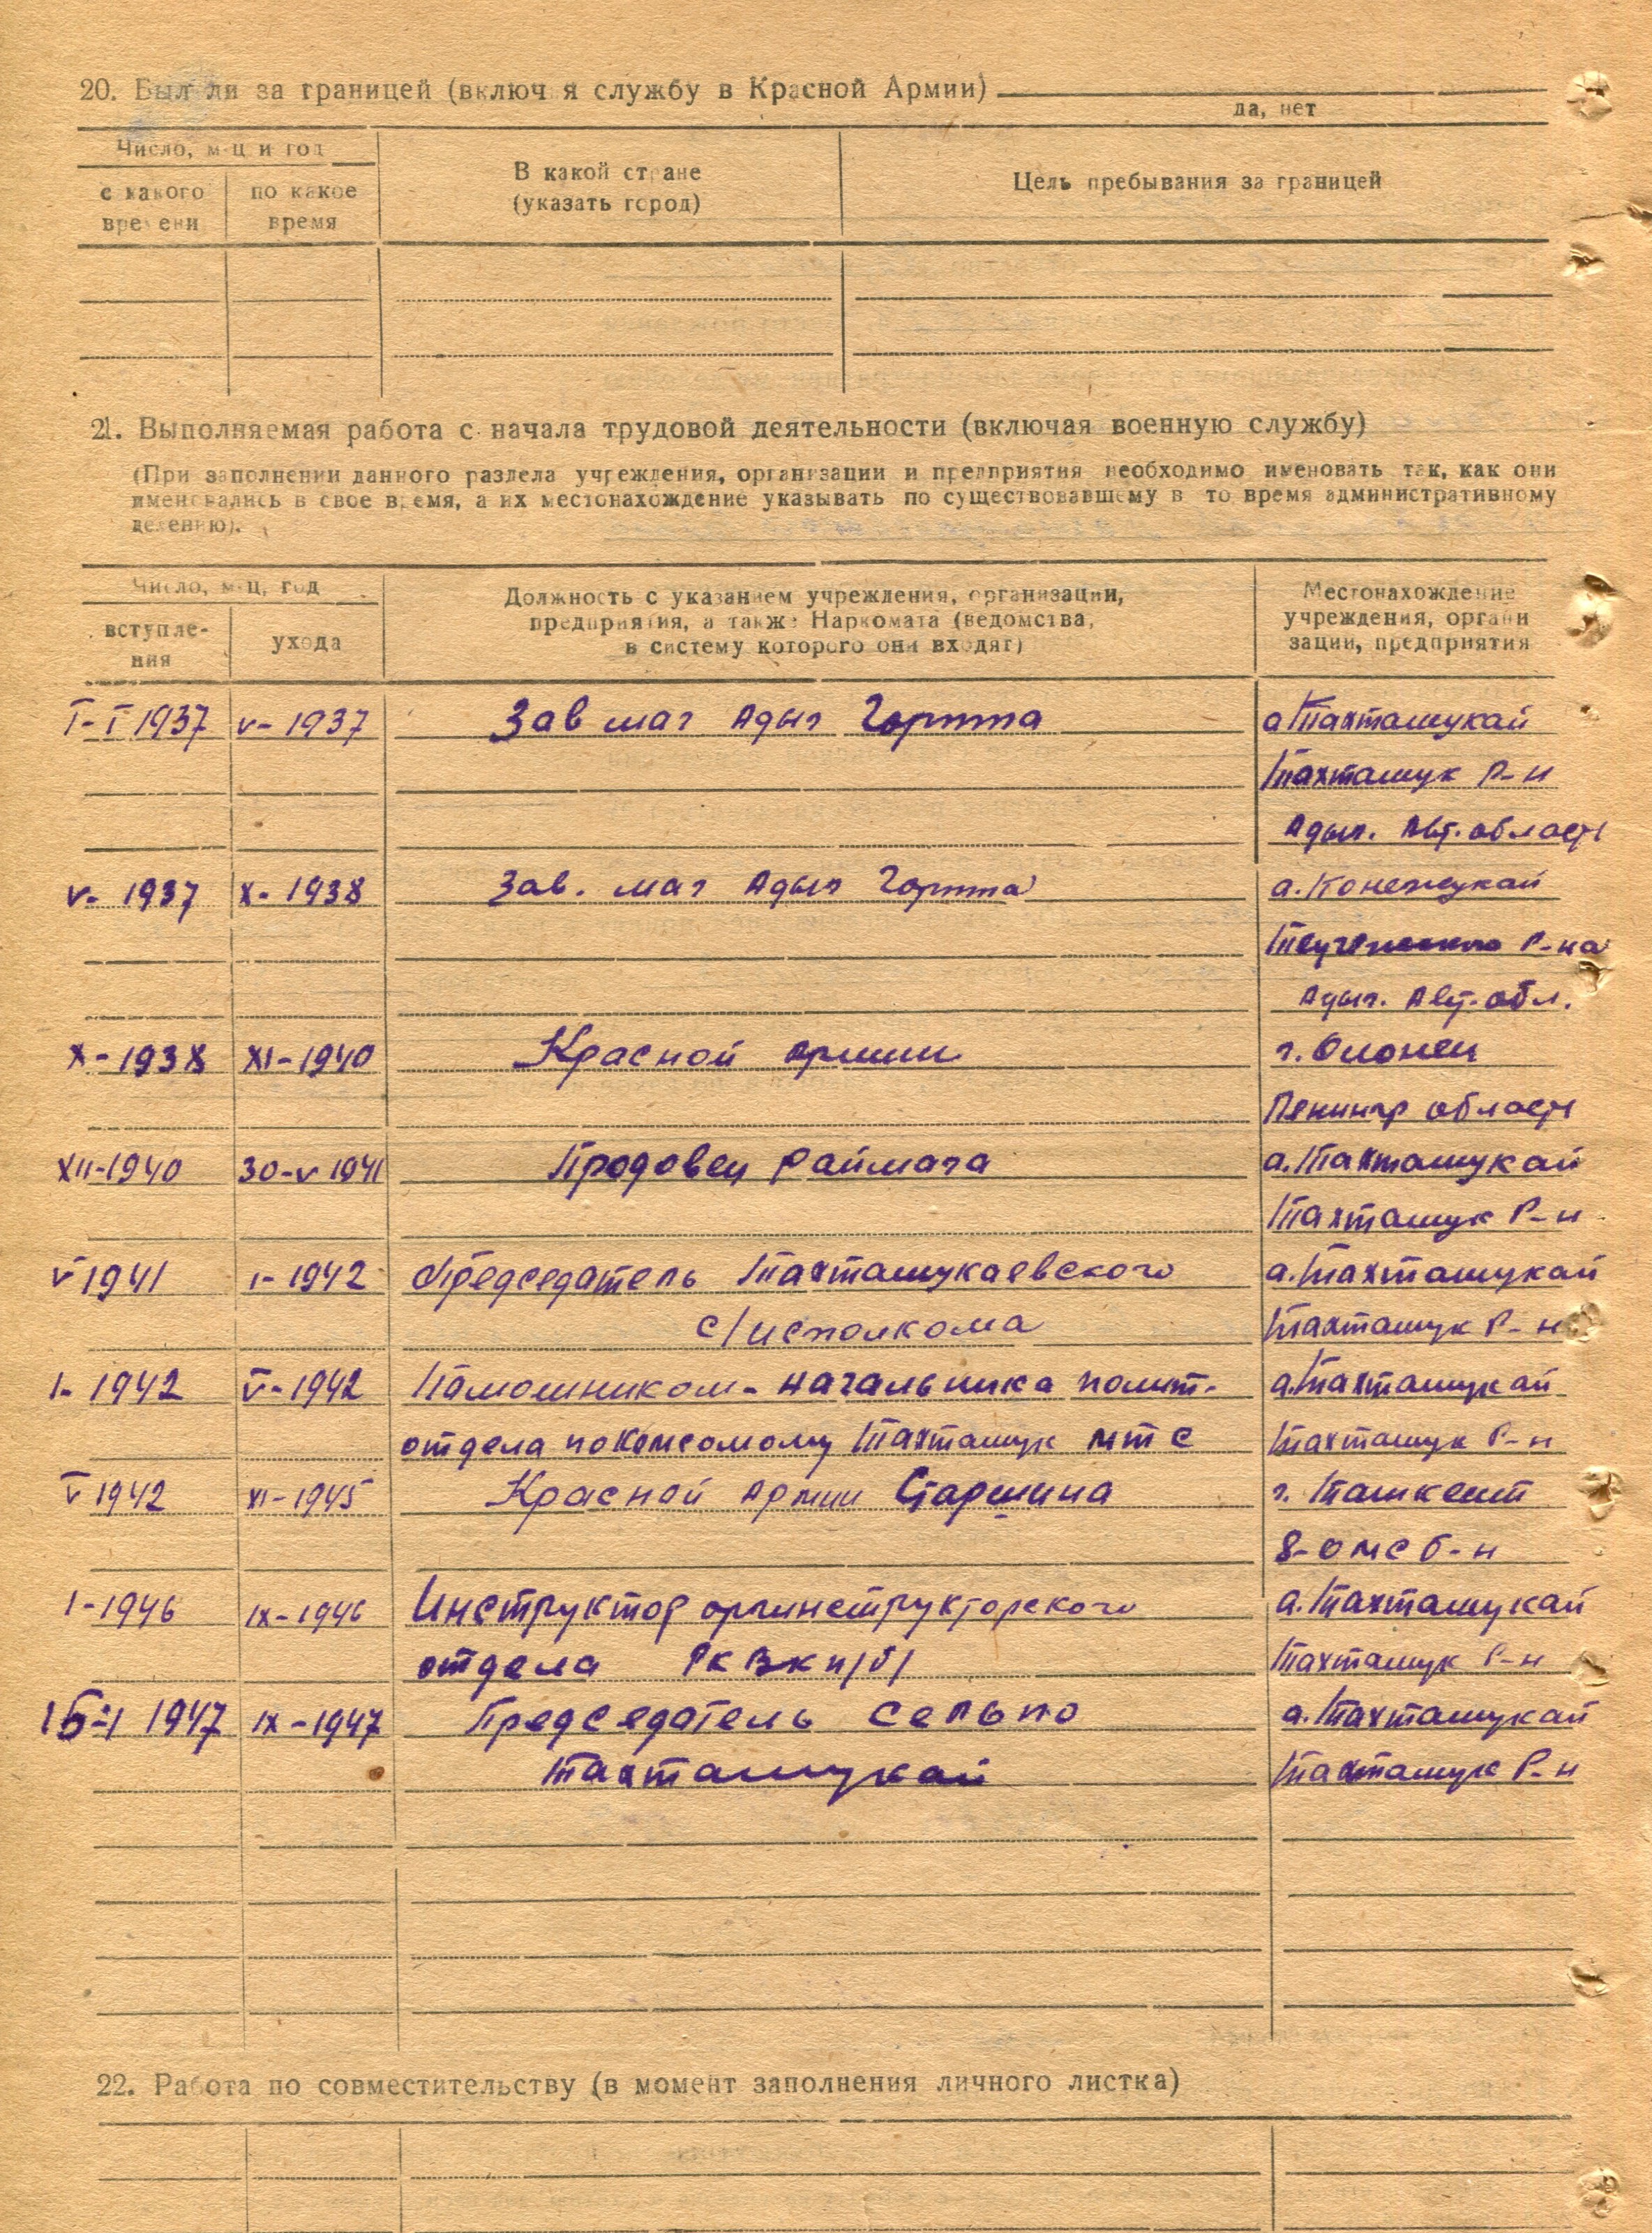 20. Был ли за границей (включ я службу в Красной Армии)
да, нет
Число, м-ц и год
с какого времени
по какое время
В какой стране
(указать город)
Цель пребывания за границей
21. Выполняемая работа с начала трудовой деятельности (включая военную службу)
(При заполнении данного раздела учреждения, организации и предприятия необходимо именовать так, как они
именовались в свое время, а их местонахождение указывать по существовавшему в то время административному
делению).
Число, м-ц, год
вступле-
ния
ухода
Должность с указанием учреждения, организации,
предприятия, а также Наркомата (ведомства,
в систему которого они входят)
Местонахождение
учреждения, органи
зации, предприятия
I-I 1937 V-1937 Зав маг Адыг а Тахтамукай
Тахтамук Р-н
Адыг. Авт. област
V-1937 X-1938 Зав. маг Адыг а. Понежукай
Теучежского Р-на
Адыг. Авт. обл.
X-1938 XI-1940 Красной армии г. Олонец
Ленингр област
XII-1940 30-V 1941 Продовец Раймага а. Тахтамукай
Тахтамук Р-н
V 1941 I-1942 Председатель Тахтамукаевского а. Тахтамукай
с/исполкома Тахтамук Р-н
I-1942 V-1942 Памошником-начальника полит- а. Тахтамукай
отдела покомсомолу Тахтамук мтс Тахтамук Р-н
V 1942 XI-1945 Красной Армии Старшина г. Ташкент
8-омс б-н
I-1946 IX-1946 Инструктор оргинструкторского а. Тахтамукай
отдела Рк Вкп/б/ Тахтамук Р-н
15-I 1947 IX-1947 Председатель Сельпо а. Тахтамукай
Тахтамукай Тахтамук Р-н
22. Работа по совместительству (в момент заполнения личного листка)